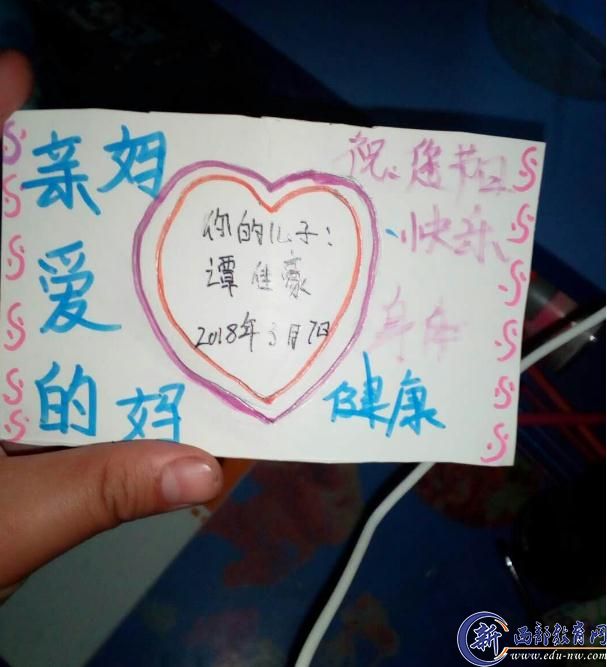 亲爱的
妈妈
祝您节日
快乐
身体
健康
你的儿子:
谭健豪
2018年3月7日
新西部教育网
www.edu-nw.com